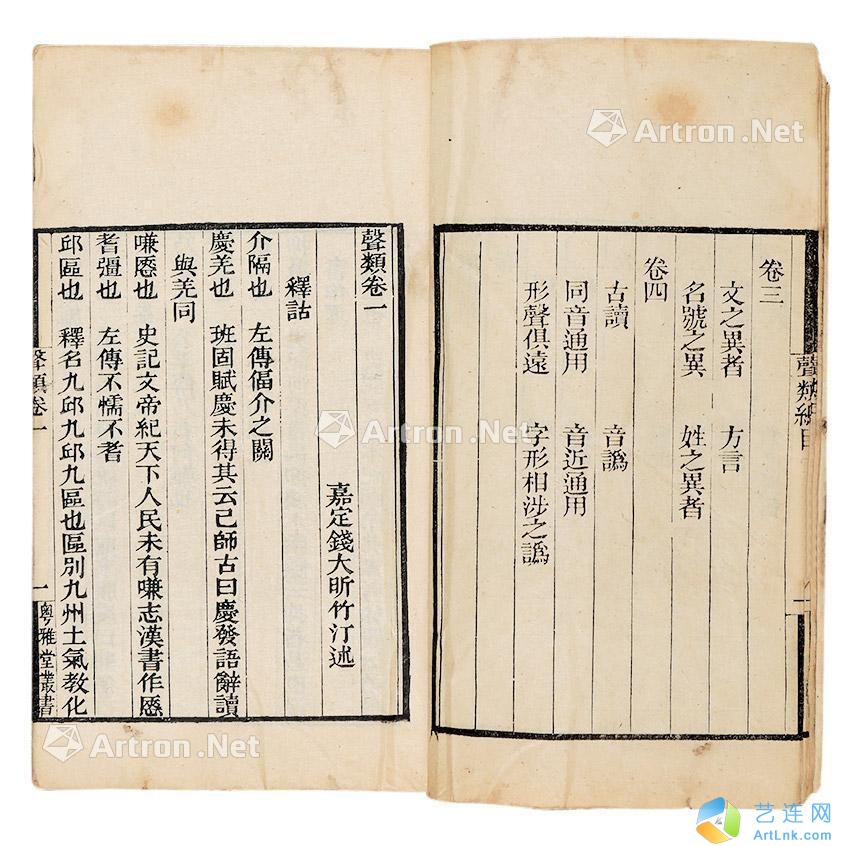 卷三
文之異者　方言
名號之異　姓之異者
卷四
古讀　音譌
同音通用　音近通用
形聲俱遠　字形相涉之譌
聲類細目
一
聲類卷一
嘉定錢大昕竹汀述
釋詁
介隔也　左傳偪介之關
慶羌也　班固賦慶未得其云己師古曰慶發語辭讀
與羌同
嗛愿也　史記文帝紀天下人民未有嗛志漢書作愿
耆彊也　左傳不懦不耆
邱區也　釋名九邱九邱九區也區別九州土氣教化
聲類卷一
一
粵雅堂叢書
Artron.Net
Artron.Net
Artron.Net
Artron.Net
艺连网
ArtLnk.com